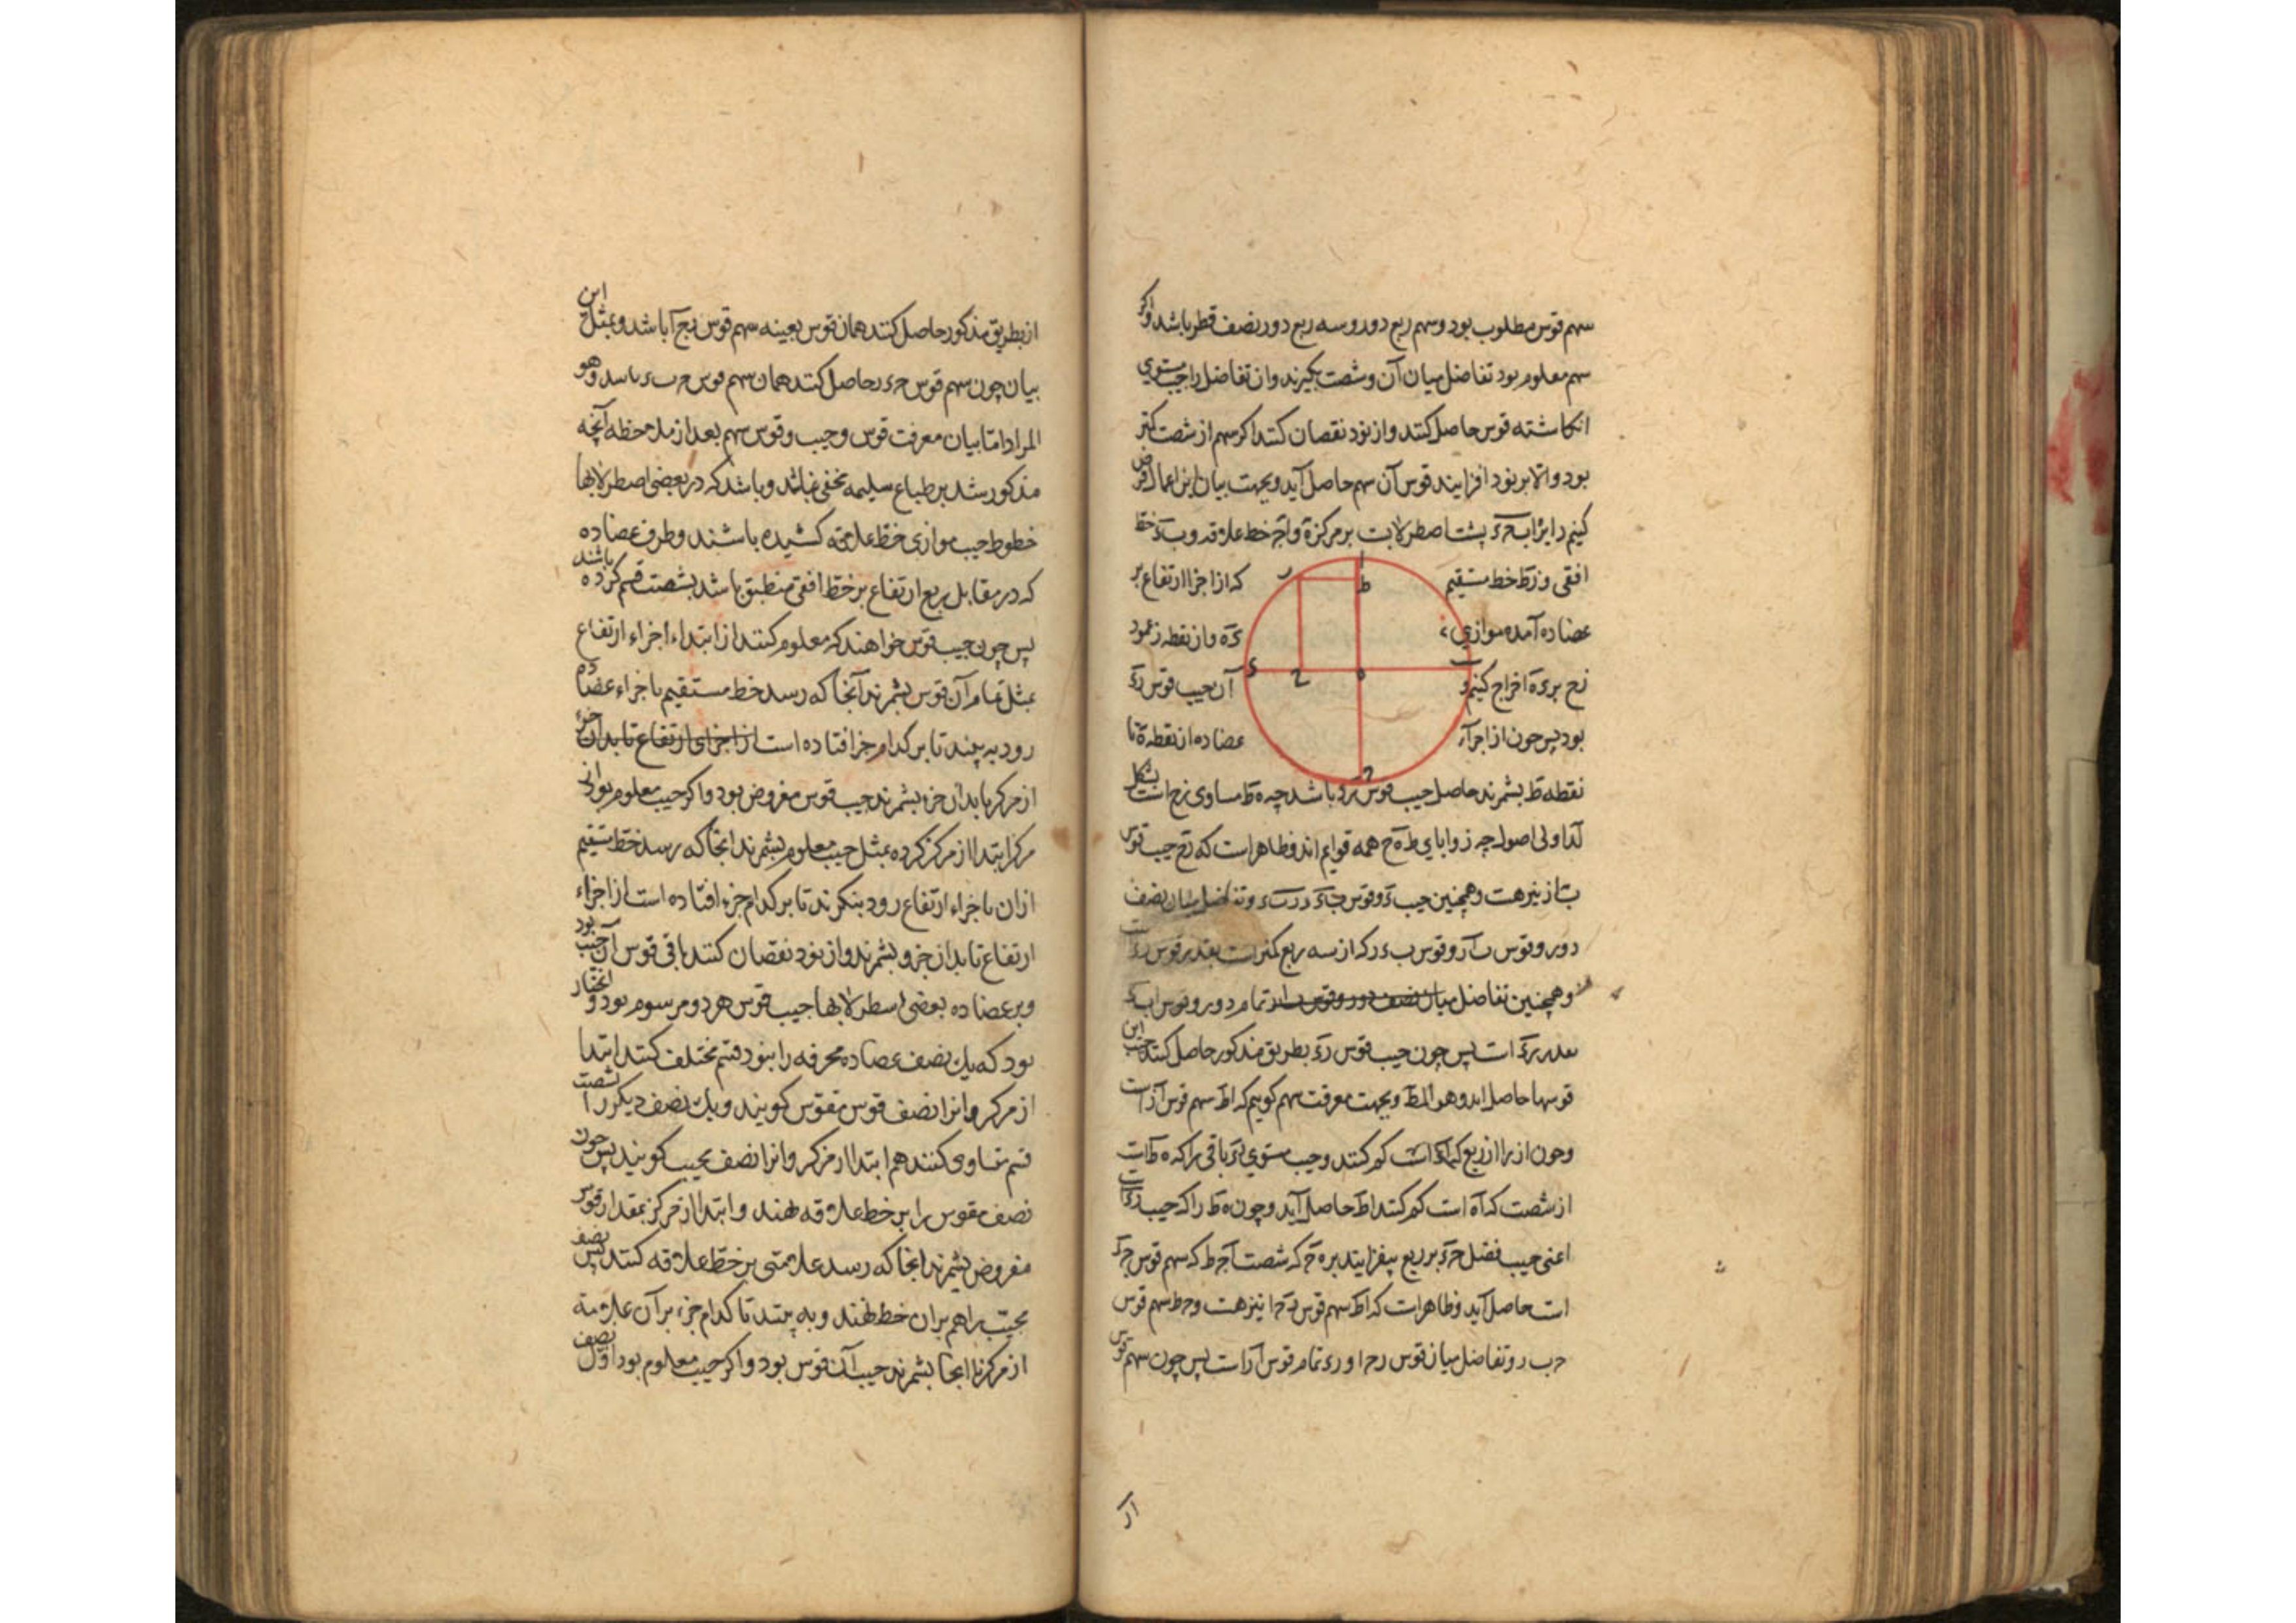 سهم قوس مطلوب بود و سهم ربع دور و سه ربع دور نصف قطر باشد و اگر
سهم معلوم بود تفاضل میان آن و شصت بگیرند و آن تفاضل را جیب مستوی
انکاشته قوس حاصل کنند و از نود نقصان کنند اکر سهم از شصت کمتر
بود و الا بر نود افزایند قوس آن سهم حاصل آید و بجهت بیان این اعمال فرض
کنیم دایرۀ ابجد پشت اصطرلابت بر مرکز ه و اج خط علاقه و ب د خط
افقی و زط خط مستقیم که از اجزا ارتفاع بر
عضاده آمده موازی ده و از نقطه ز عمود
زح بر ده اخراج کنیم و آن جیب قوس زد
بود پس چون از اجزاء عضاده از نقطه ه تا
نقطه ط بشمرند حاصل جیب قوس زد باشد چه ه ط مساوی زح است بشکل
لد اولی اصول چه زوایای ط ه ح همه قوایم اند و ظاهر است که زح جیب قوس
ب از نیز هست و همچنین جیب قوس و تفاضل میان نصف
دور و قوس ب از و قوس که از سه ربع کمتر است بقدر قوس زد است
و همچنین تفاضل میان نصف دور و قوس تمام دور و قوس
است پس چون جیب قوس زد بطریق مذکور حاصل کنند جیب این
قوسها حاصل اید و هو المط و بجهت معرفت سهم کوییم که اط سهم قوس از است
و چون از را از ربع که اد است کم کنند و جیب مستوی باقی را که ه ط است
از شصت که اه است کم کنند اط حاصل آید و چون ه ط را که جیب زد است
اعنی جیب فضل بر ربع بیفزایند بر ه ج که شصت است ج ط که سهم قوس
است حاصل آید و ظاهر است که اط سهم قوس نیز هست و ج ط سهم قوس
ج ب ر و تفاضل میان قوس تمام قوس از است پس چون سهم قوس
از
از بطریق مذکور حاصل کنند همان قوس بعینه سهم قوس باشد و بمثل این
بیان چون سهم قوس حاصل کنند همان سهم قوس باشد و هو
المراد اما بیان معرفت قوس و جیب و قوس سهم بعد از ملاحظه آنچه
مذکور شد بر طباع سلیمه مخفی نماند و باشد که در بعضی اصطرلابها
خطوط جیب موازی خط علاقه کشیده باشند و طرف عضاده
که در مقابل ربع ارتفاع بر خط افقی منطبق باشد بشصت قسم کرده باشند
پس چون جیب قوس خواهند که معلوم کنند از ابتداء اجزاء ارتفاع
بمثل تمام آن قوس بشمرند آنجا که رسد خط مستقیم باجزاء عضاده
رود به بینند تا بر کدام جزا افتاده است از اجزای ارتفاع تا بدان جزء
از مرکز تا بدان جزء بشمرند جیب قوس مفروض بود و اکر جیب معلوم بود از
مرکز ابتدا از مرکز کرده بمثل جیب معلوم بشمرند انجا که رسد خط مستقیم
از ان باجزاء ارتفاع رود بنکرند تا بر کدام جزء افتاده است از اجزاء
ارتفاع تا بدان جزو بشمرند و از نود نقصان کنند باقی قوس آن جیب بود
و بر عضاده بعضی اسطرلابها جیب قوس هر دو مرسوم بود و انچنان
بود که یک نصف عضاده محرفه را بنود قسم مختلف کنند ابتدا
از مرکز و انرا نصف قوس مقوس کویند و یک نصف دیکر را بشصت
قسم متساوی کنند هم ابتدا از مرکز و انرا نصف مجیب کویند پس چون
نصف مقوس را بر خط علاقه نهند و ابتدا از مرکز بمقدار قوس
مفروض بشمرند انجا که رسد علامتی بر خط علاقه کنند پس نصف
مجیب را هم بران خط نهند و به بینند تا کدام جزء بر آن علامة
از مرکز تا انجا بشمرند جیب آن قوس بود و اکر جیب معلوم بود اول نصف